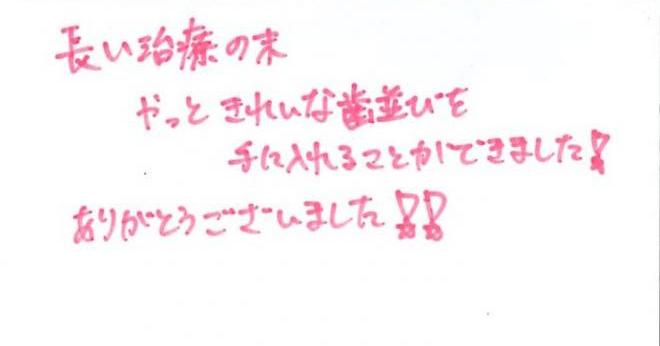 長い治療の末
やっときれいな歯並びを
手に入れることができました！
ありがとうございました！！